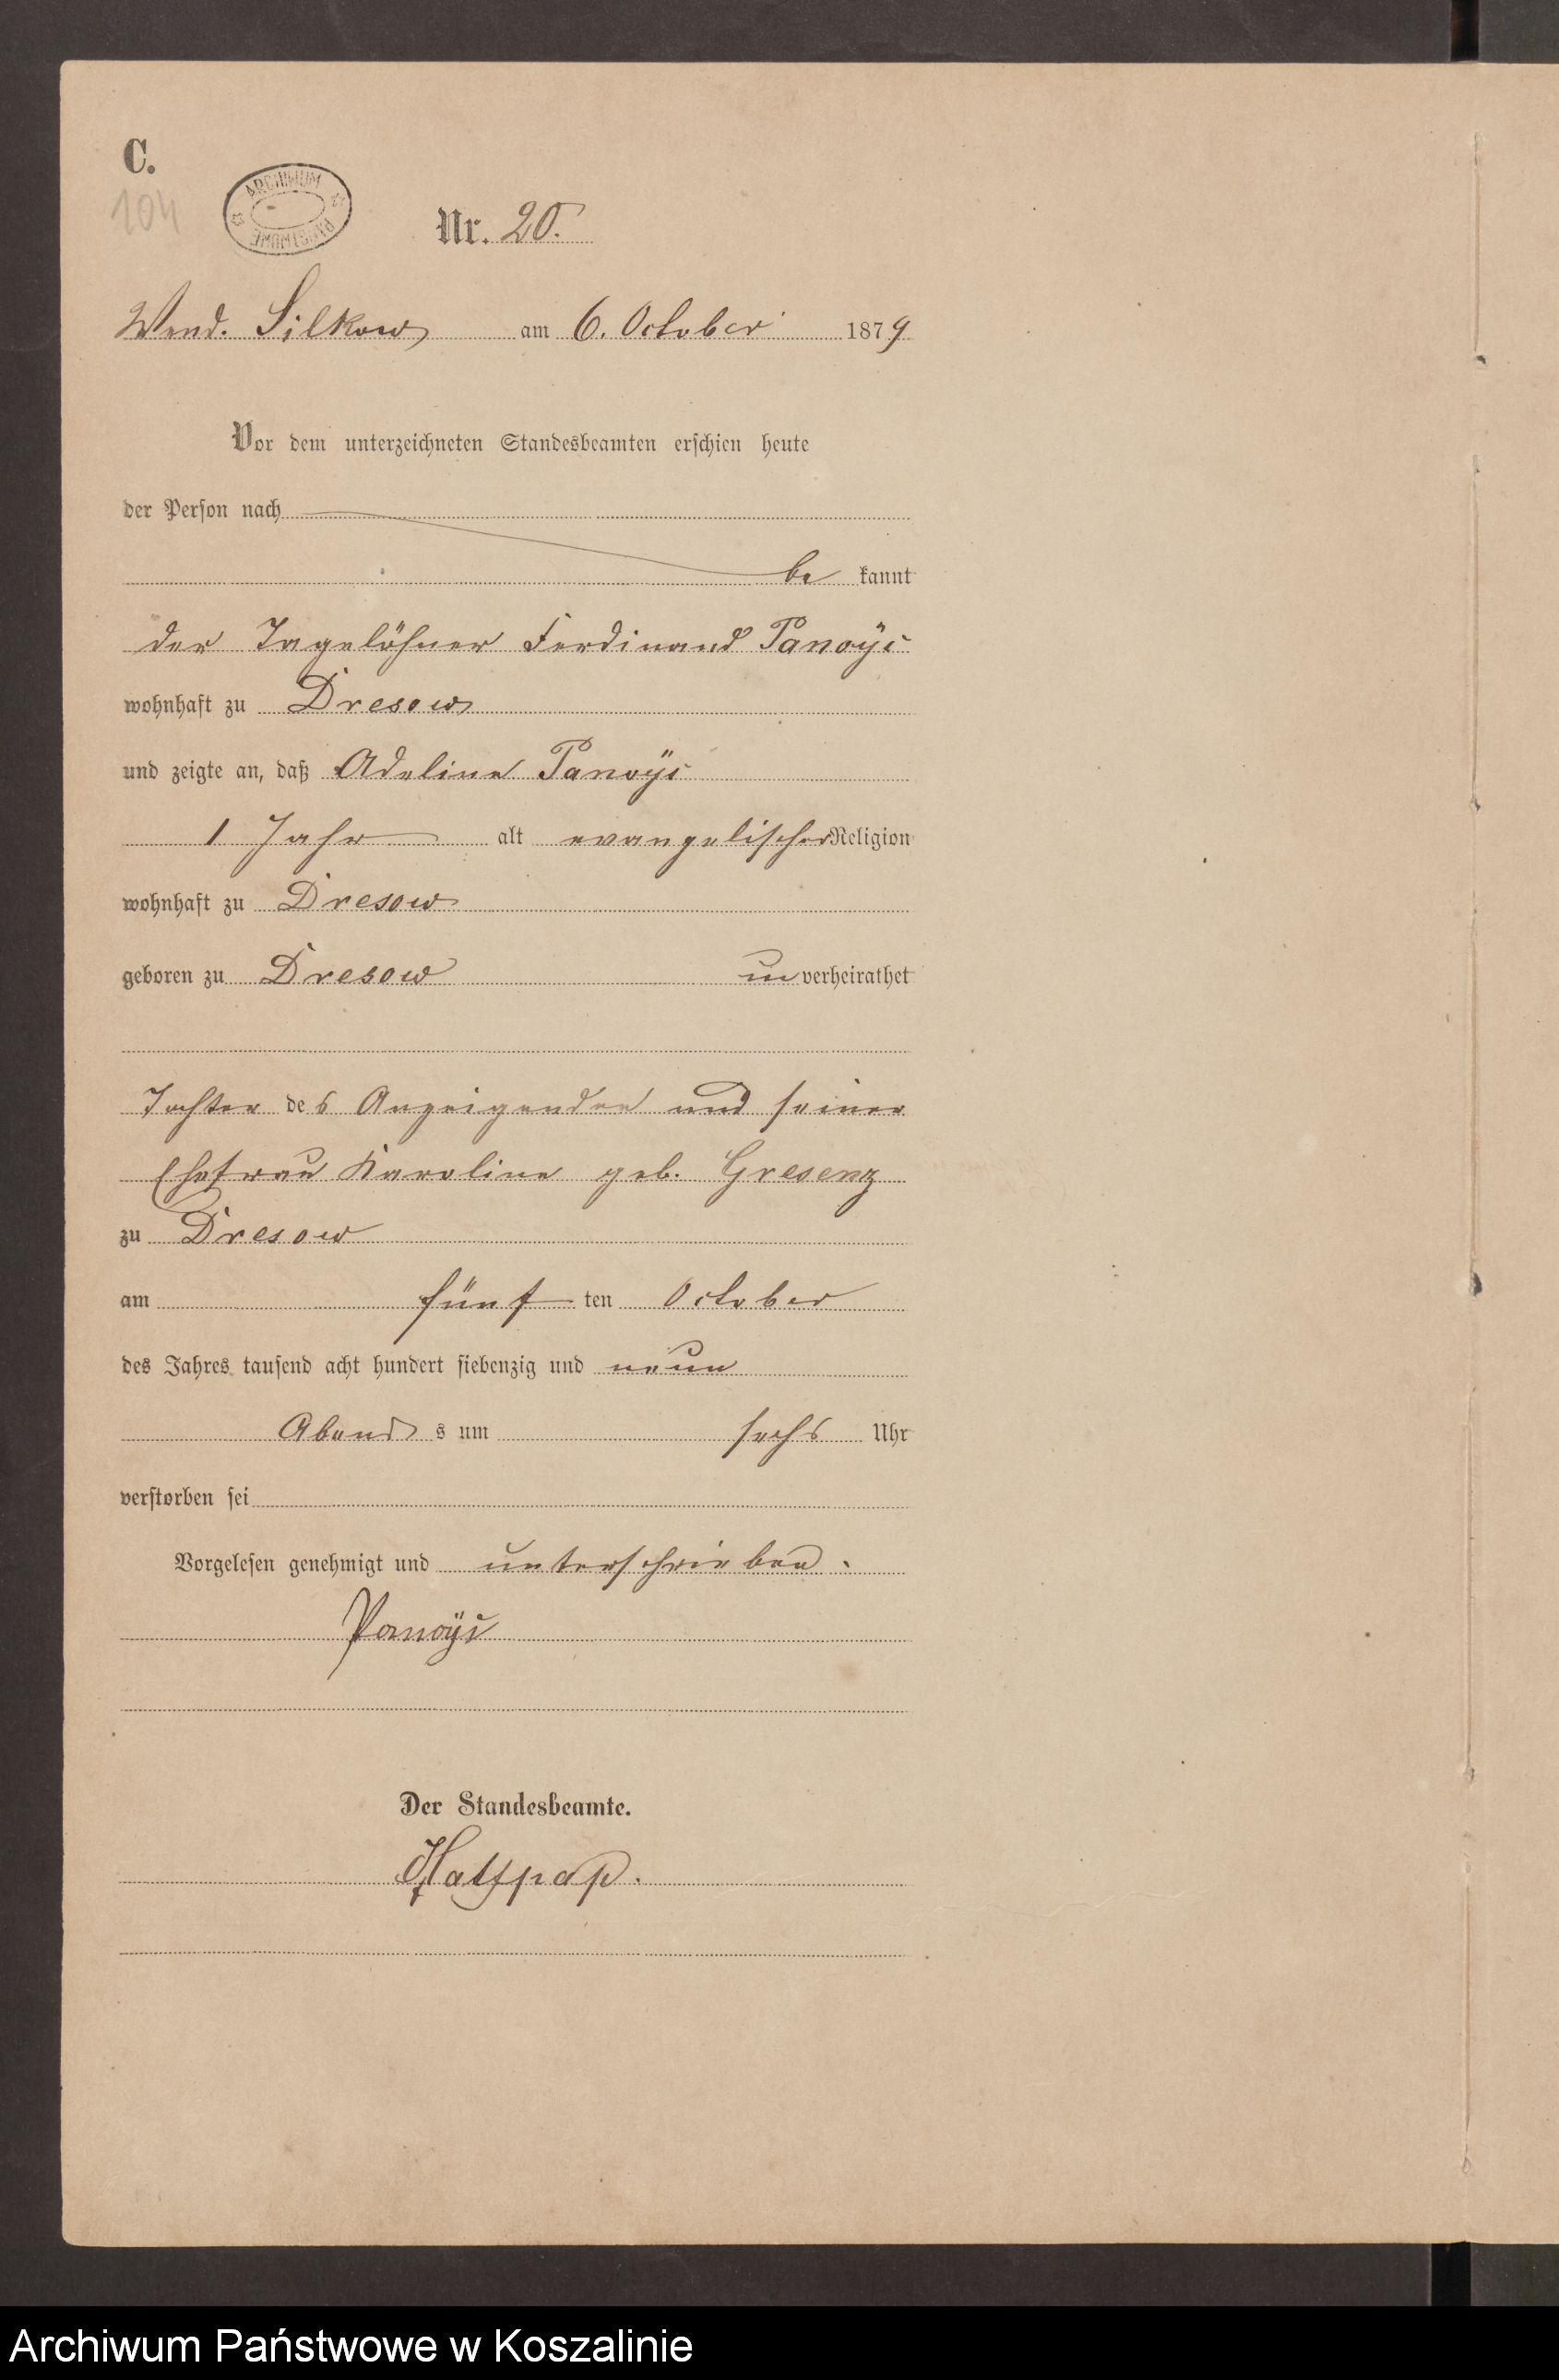 C.
104
ARCHIWUM
Nr. 20.
Wend. Silkow am 6. October 1879
Vor dem unterzeichneten Standesbeamten erschien heute
der Person nach
be kannt
der Tagelöhner Ferdinand Panoÿs
wohnhaft zu Dresow
und zeigte an, daß Adeline Panoÿs
1 Jahr alt evangelischer Religion
wohnhaft zu Dresow
geboren zu Dresow un verheirathet
Tochter des Anzeigenden und seiner
Ehefrau Karoline geb. Gresenz
zu Dresow
am fünf ten October
des Jahres tausend acht hundert siebenzig und neun
Abend s um sechs Uhr
verstorben sei
Vorgelesen genehmigt und unterschrieben.
Panoÿs
Der Standesbeamte.
Archiwum Państwowe w Koszalinie